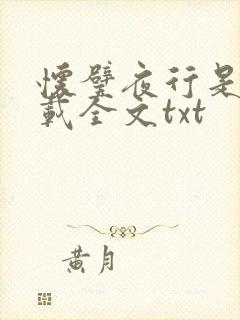 懷璧夜行是
載全文txt
黃月